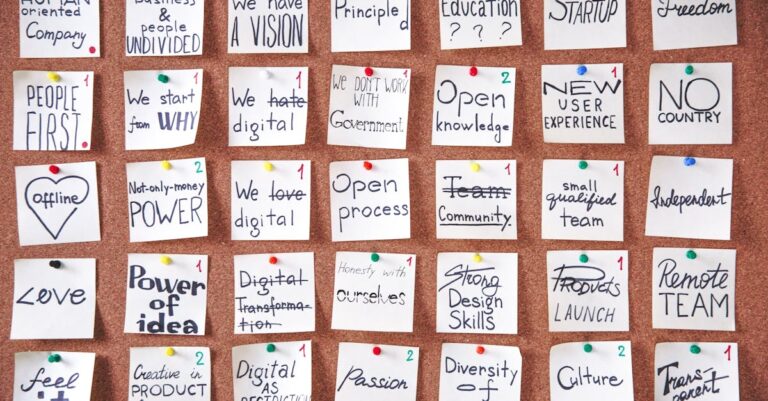 HUMAN
oriented
Company
Business
&
people
UNDIVIDED
We have
A VISION
Principled
Education
? ? ?
STARTUP
Freedom
1
PEOPLE
FIRST
1
We start
from WHY
1
We hate
digital
1
We DON'T WORK
WITH
Government
2
Open
knowledge
1
NEW
USER
EXPERIENCE
NO
COUNTRY
offline
2
Not-only-money
POWER
1
We love
digital
1
Open
process
1
Team
Community
1
small
qualified
team
Independent
Love
1
Power
of
idea
1
Digital
Transforma-
tion
1
Honesty with
ourselves
Strong
Design
Skills
1
Products
LAUNCH
Remote
TEAM
feel
it
2
Creative in
PRODUCT
1
Digital
AS
RESTRICTION
2
Passion
Diversity
of
2
Culture
1
Trans-
parent